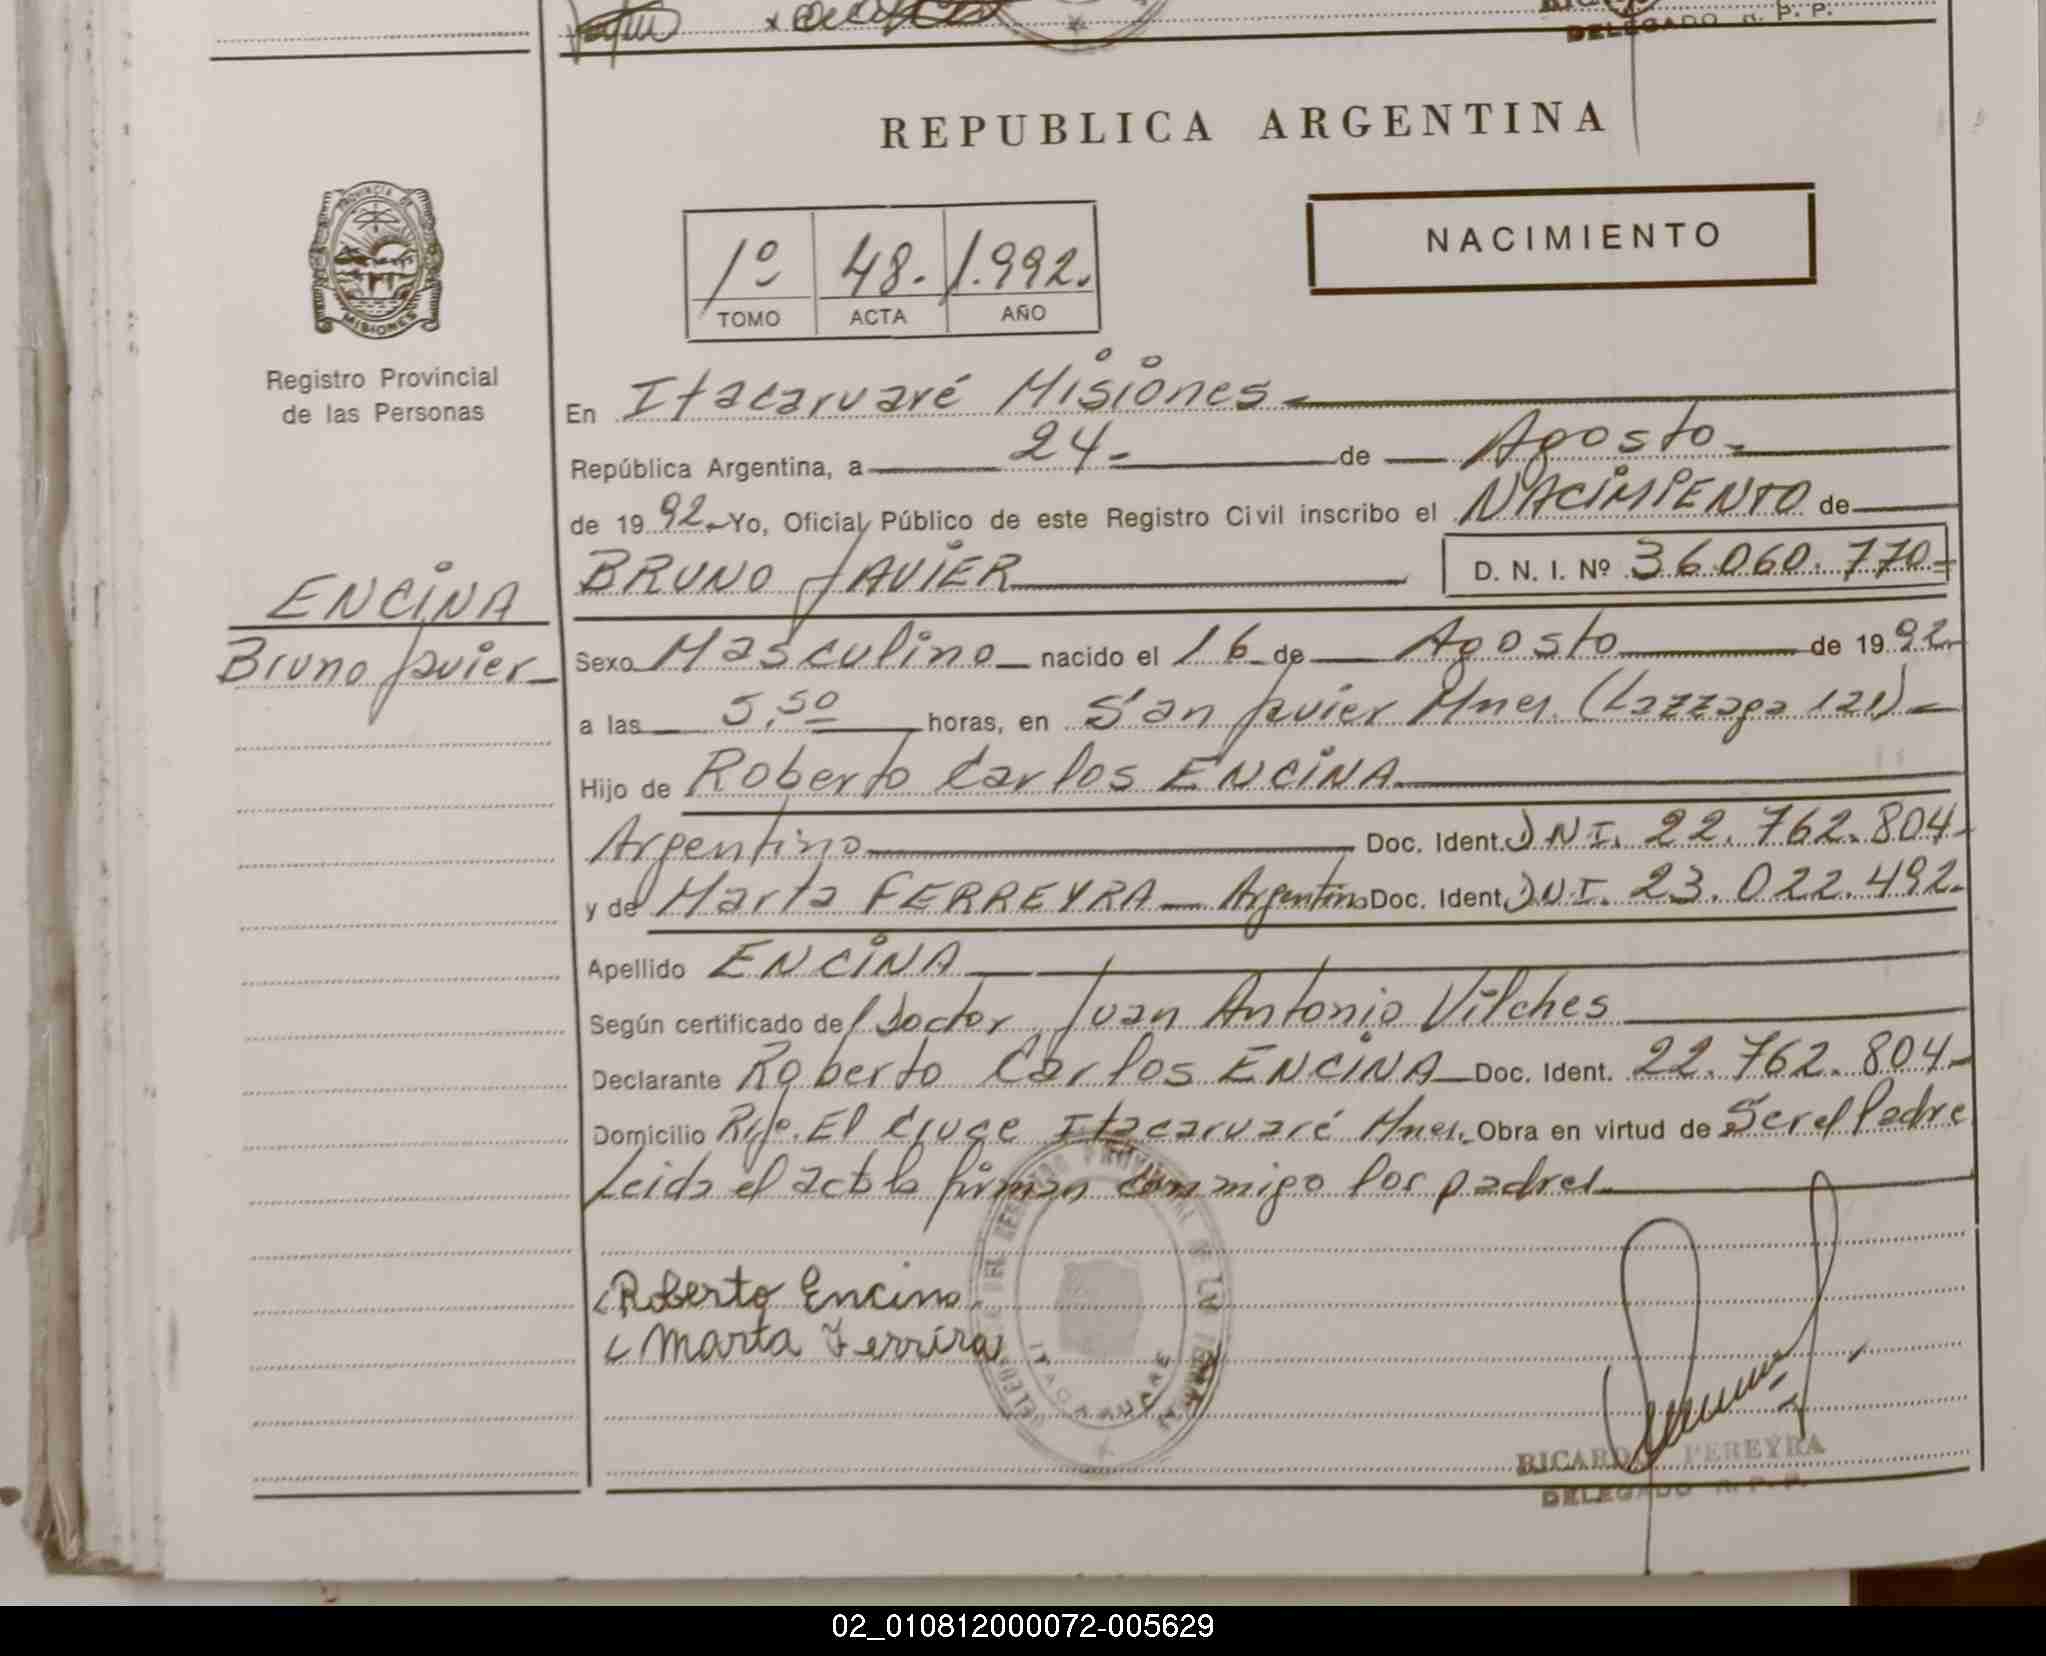 DELEGADO R. P. P.
REPUBLICA ARGENTINA
PROVINCIA DE
MISIONES
Registro Provincial
de las Personas
1º 48. 1.992.
TOMO ACTA AÑO
NACIMIENTO
En Itacaruaré Misiones
República Argentina, a 24 de Agosto
de 1992 Yo, Oficial Público de este Registro Civil inscribo el NACIMIENTO de
BRUNO JAVIER D. N. I. Nº 36.060.770
ENCINA
Bruno Javier
Sexo Masculino nacido el 16 de Agosto de 1992
a las 5,50 horas, en San Javier Mnes. (Lazzaga 121)
Hijo de Roberto Carlos ENCINA
Argentino Doc. Ident. DNI. 22.762.804
y de Marta FERREYRA Argentina Doc. Ident. DNI. 23.022.492
Apellido ENCINA
Según certificado del Doctor Juan Antonio Vilches
Declarante Roberto Carlos ENCINA Doc. Ident. 22.762.804
Domicilio El Cruce Itacaruaré Mnes. Obra en virtud de Ser el Padre
Leida el acta la firman conmigo los padres
Roberto Encina
Marta Ferrira
ITACARUARE
RICARDO PEREYRA
DELEGADO R. P. P.
02_010812000072-005629